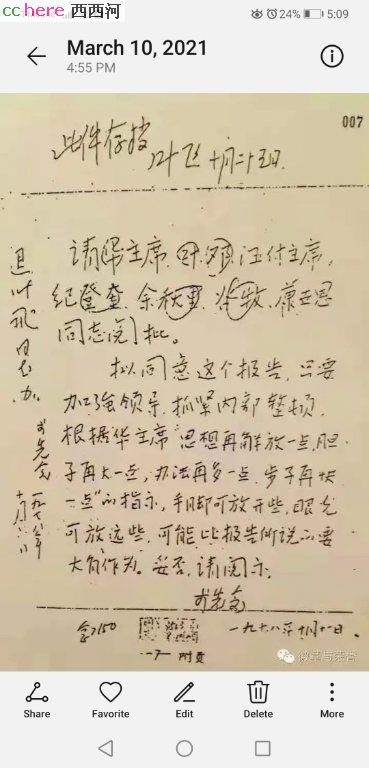 cchere 西西河
24% 5:09
March 10, 2021
4:55 PM
007
此件存档
叶飞 十月二十五日
请华主席、叶、邓、汪付主席,
纪登奎、余秋里、谷牧、康世恩
同志阅批。
拟同意这个报告,只要
加强领导,抓紧内部整顿,
根据华主席“思想再解放一点,胆
子再大一点,办法再多一点,步子再快
一点”的指示,手脚可放开些,眼光
可放远些,可能比报告所说的要
大有作为。妥否,请阅示。
李先念
一九七八年十月十一日
退叶飞同志办
李先念
一九七八年
附页
Share
Favorite
Edit
Delete
More